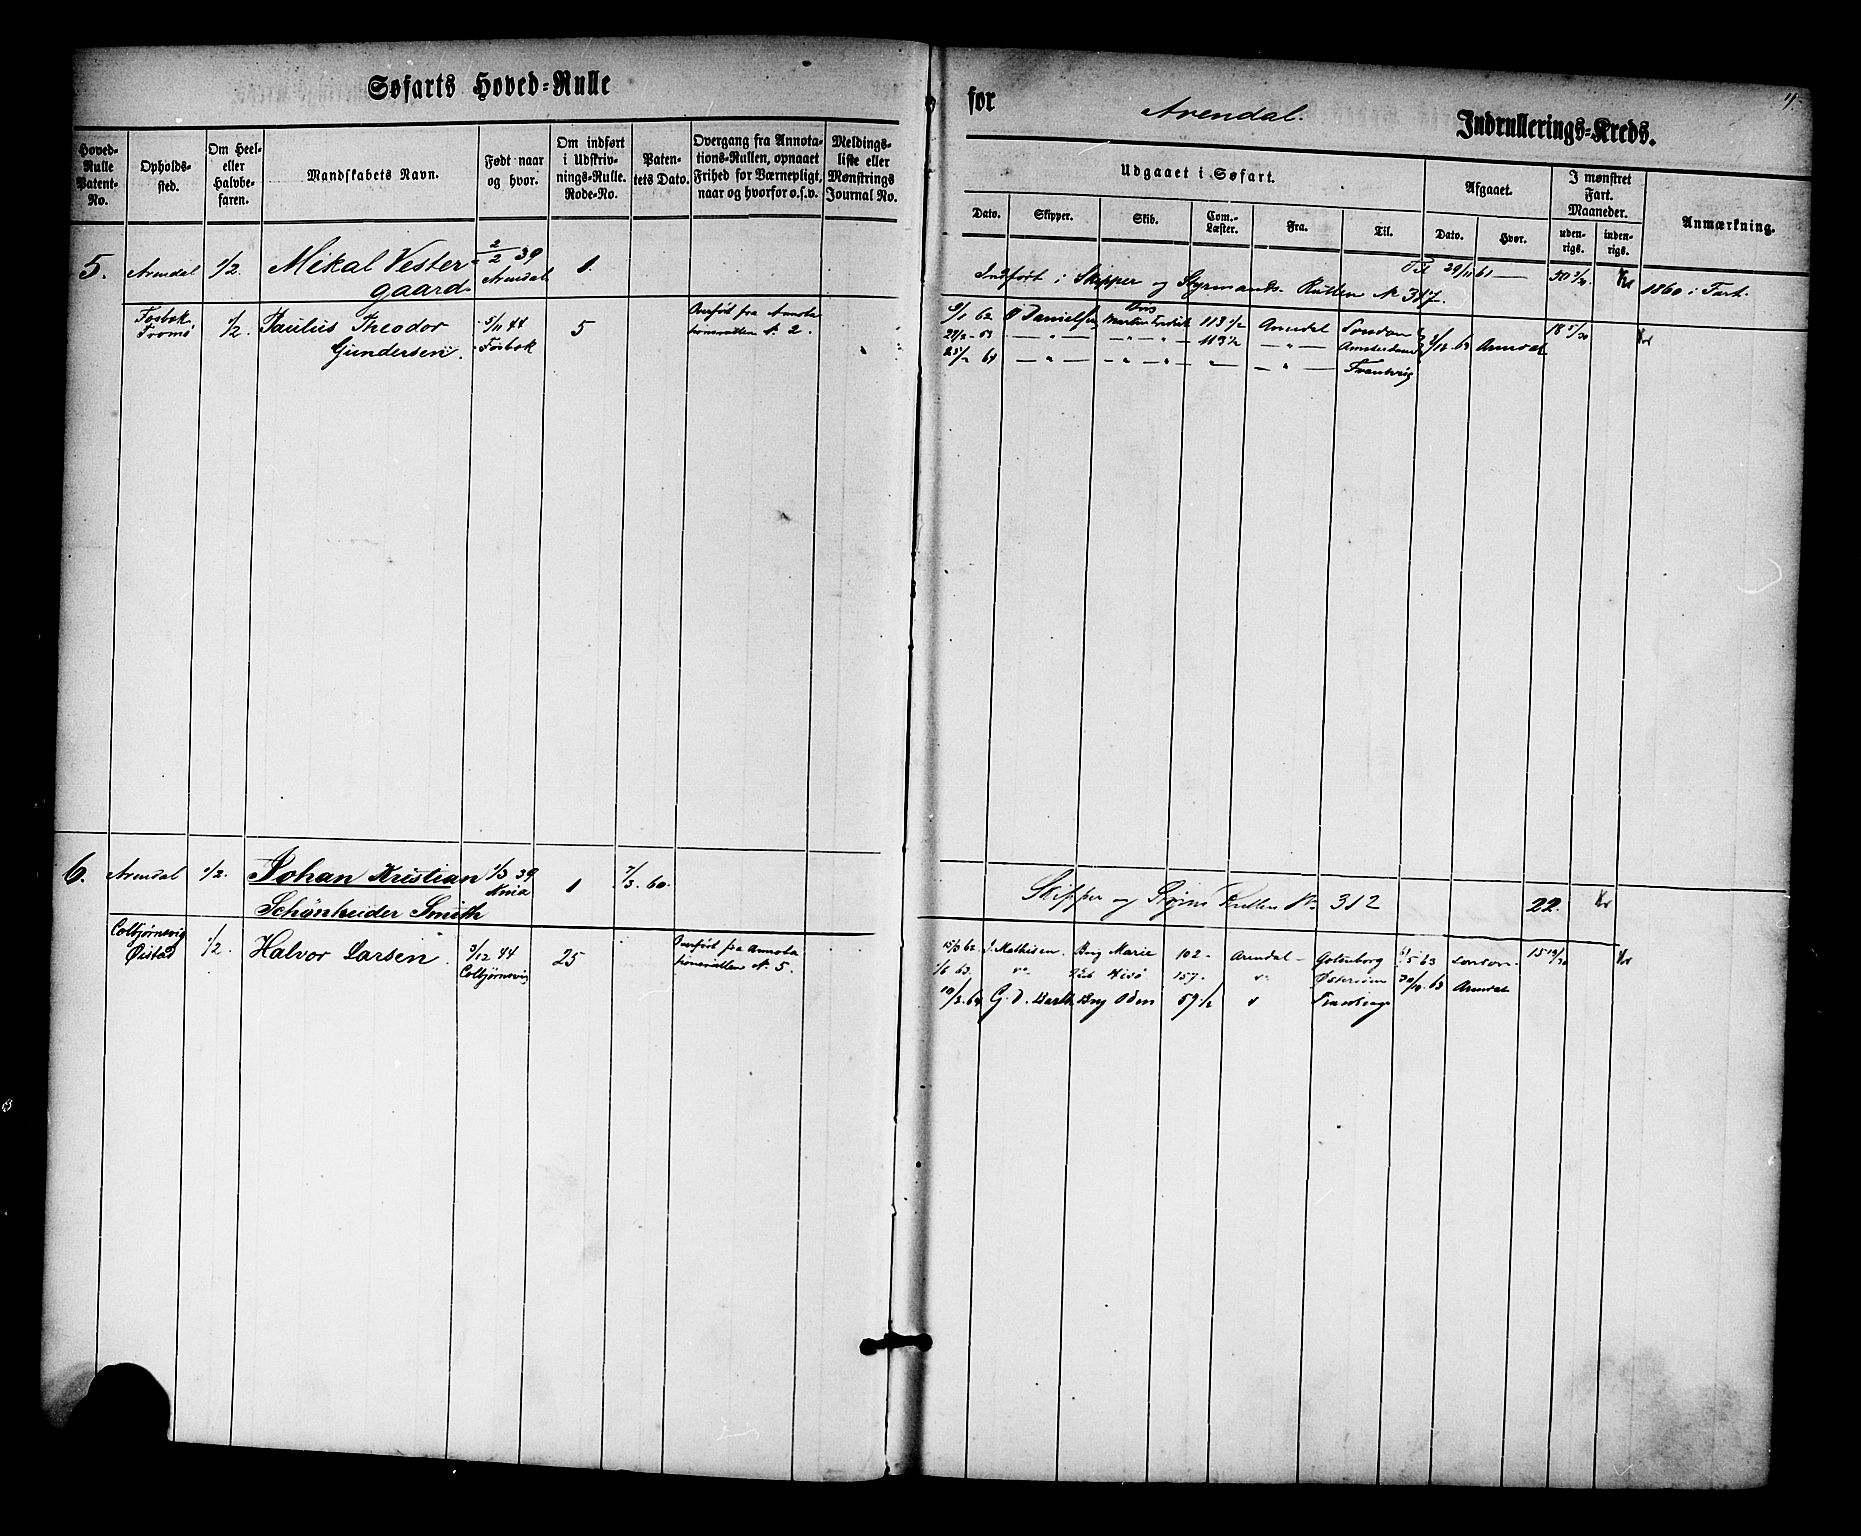 Søfarts Hoved=Rulle
for Arendal. Indrullerings=Kreds.
Hoved-Rulle Patent-No.
Opholds-sted.
Om Heel- eller Halvbe-faren.
Mandskabets Navn.
Født naar og hvor.
Om indført i Udskriv-nings-Rulle. Rode-No.
Paten-tets Dato.
Overgang fra Annota-tions-Rullen, opnaaet Frihed for Værnepligt, naar og hvorfor o.s.v.
Meldings-liste eller Mønstrings Journal No.
Udgaaet i Søfart.
Dato. Skipper. Skib. Com.-Læster. Fra. Til.
Afgaaet.
Dato. Hvor.
I mønstret Fart. Maaneder.
uden-rigs. inden-rigs.
Anmærkning.
5. Arendal 1/2. Mikal Vester-gaard 2/2 39 Arendal 1.
Indført i Skipper og Styrmands Rullen No 317. Til 29/11 61 1860 i Fart.
Fosbæk Tromø 1/2 Paulus Theodor Gundersen. 5/11 44 Fosbæk 5 Overført fra Annotationsrullen N. 2.
9/1 62 Danielsen 113 1/2 Arendal London
119 1/2 Amsterdam 63 Arendal
6. Arendal 1/2. Johan Kristian Schönheider Smith 1/3 39 1 7/3. 60.
Skipper og Styrm Rullen No 312 22.
Colbjørnsvig Øistad 1/2. Halvor Larsen. 9/12 44 Colbjørnsvig 25 Overført fra Annotationsrullens N. 5.
15/3 62. J. Mathisen Brig Marie 102 - Arendal - Gotenborg 63 London
1/6 63. Hisø 157 - 30/10. 63 Arendal
10/3. 64 Brig Oden 59 1/2